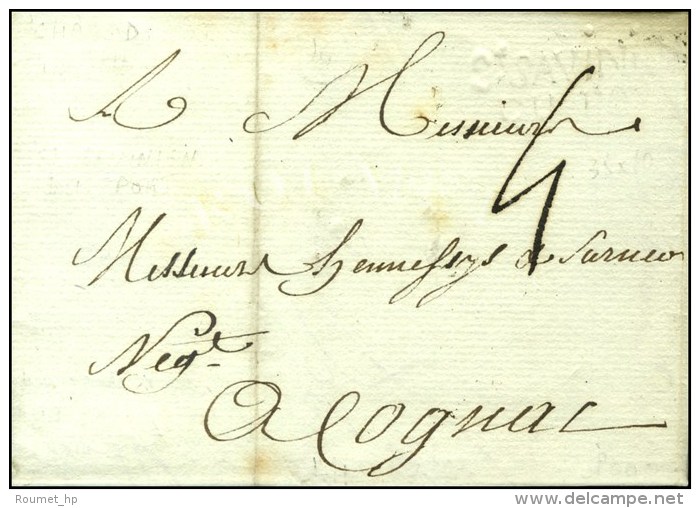 A Messieurs
4
Messieurs Hennessys &
Negt
A Cognac
Roumet_hp
www.delcampe.net